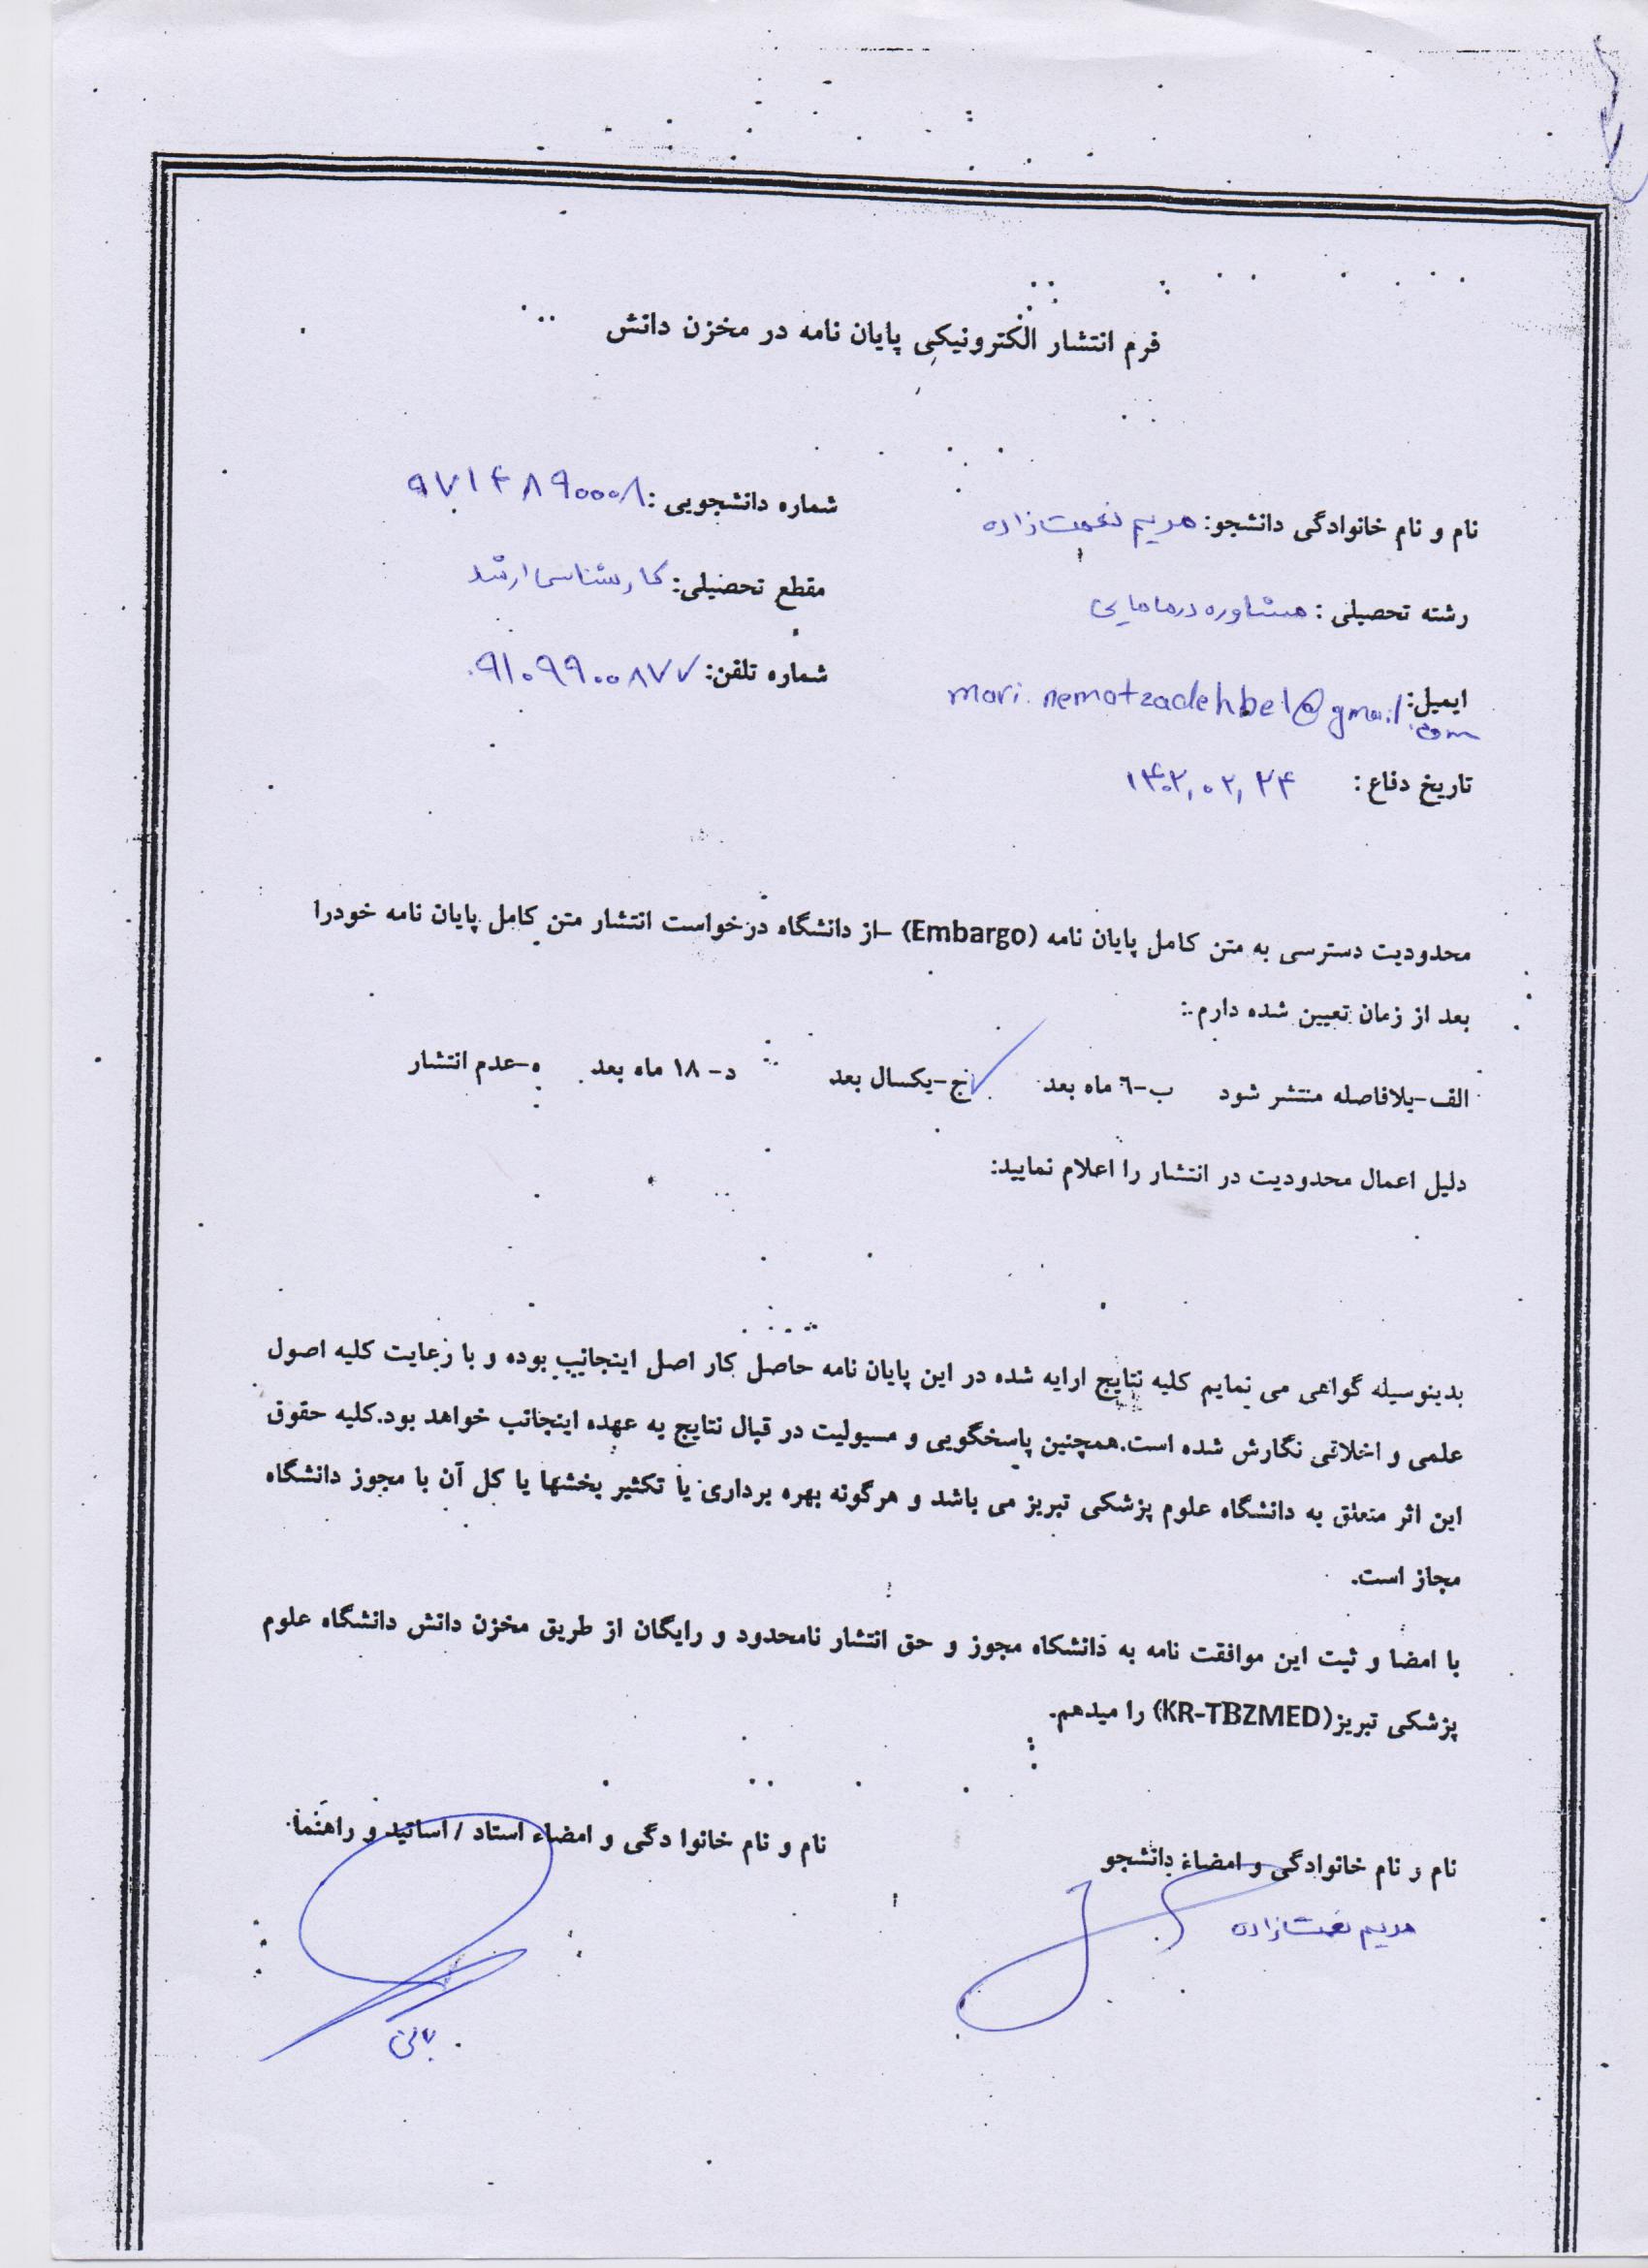 فرم انتشار الکترونیکی پایان نامه در مخزن دانش
نام و نام خانوادگی دانشجو: مریم نعمت زاده شماره دانشجویی: ۹۷۱۴۸۹۰۰۰۸
رشته تحصیلی: مشاوره در مامایی مقطع تحصیلی: کارشناسی ارشد
ایمیل: mari.nematzadehbel@gmail.com شماره تلفن: ۰۹۱۰۹۹۰۰۸۷۷
تاریخ دفاع: ۱۴۰۲,۰۲,۲۴
محدودیت دسترسی به متن کامل پایان نامه (Embargo) -از دانشگاه درخواست انتشار متن کامل پایان نامه خودرا
بعد از زمان تعیین شده دارم:
الف-بلافاصله منتشر شود ب-٦ ماه بعد ✓ج-یکسال بعد د- ۱۸ ماه بعد ه-عدم انتشار
دلیل اعمال محدودیت در انتشار را اعلام نمایید:
بدینوسیله گواهی می نمایم کلیه نتایج ارایه شده در این پایان نامه حاصل کار اصل اینجانب بوده و با رعایت کلیه اصول
علمی و اخلاقی نگارش شده است.همچنین پاسخگویی و مسیولیت در قبال نتایج به عهده اینجانب خواهد بود.کلیه حقوق
این اثر متعلق به دانشگاه علوم پزشکی تبریز می باشد و هرگونه بهره برداری یا تکثیر بخشها یا کل آن با مجوز دانشگاه
مجاز است.
با امضا و ثبت این موافقت نامه به دانشگاه مجوز و حق انتشار نامحدود و رایگان از طریق مخزن دانش دانشگاه علوم
پزشکی تبریز(KR-TBZMED) را میدهم.
نام و نام خانوادگی و امضاء دانشجو نام و نام خانوا دگی و امضاء استاد / اساتید و راهنما
مریم نعمت زاده